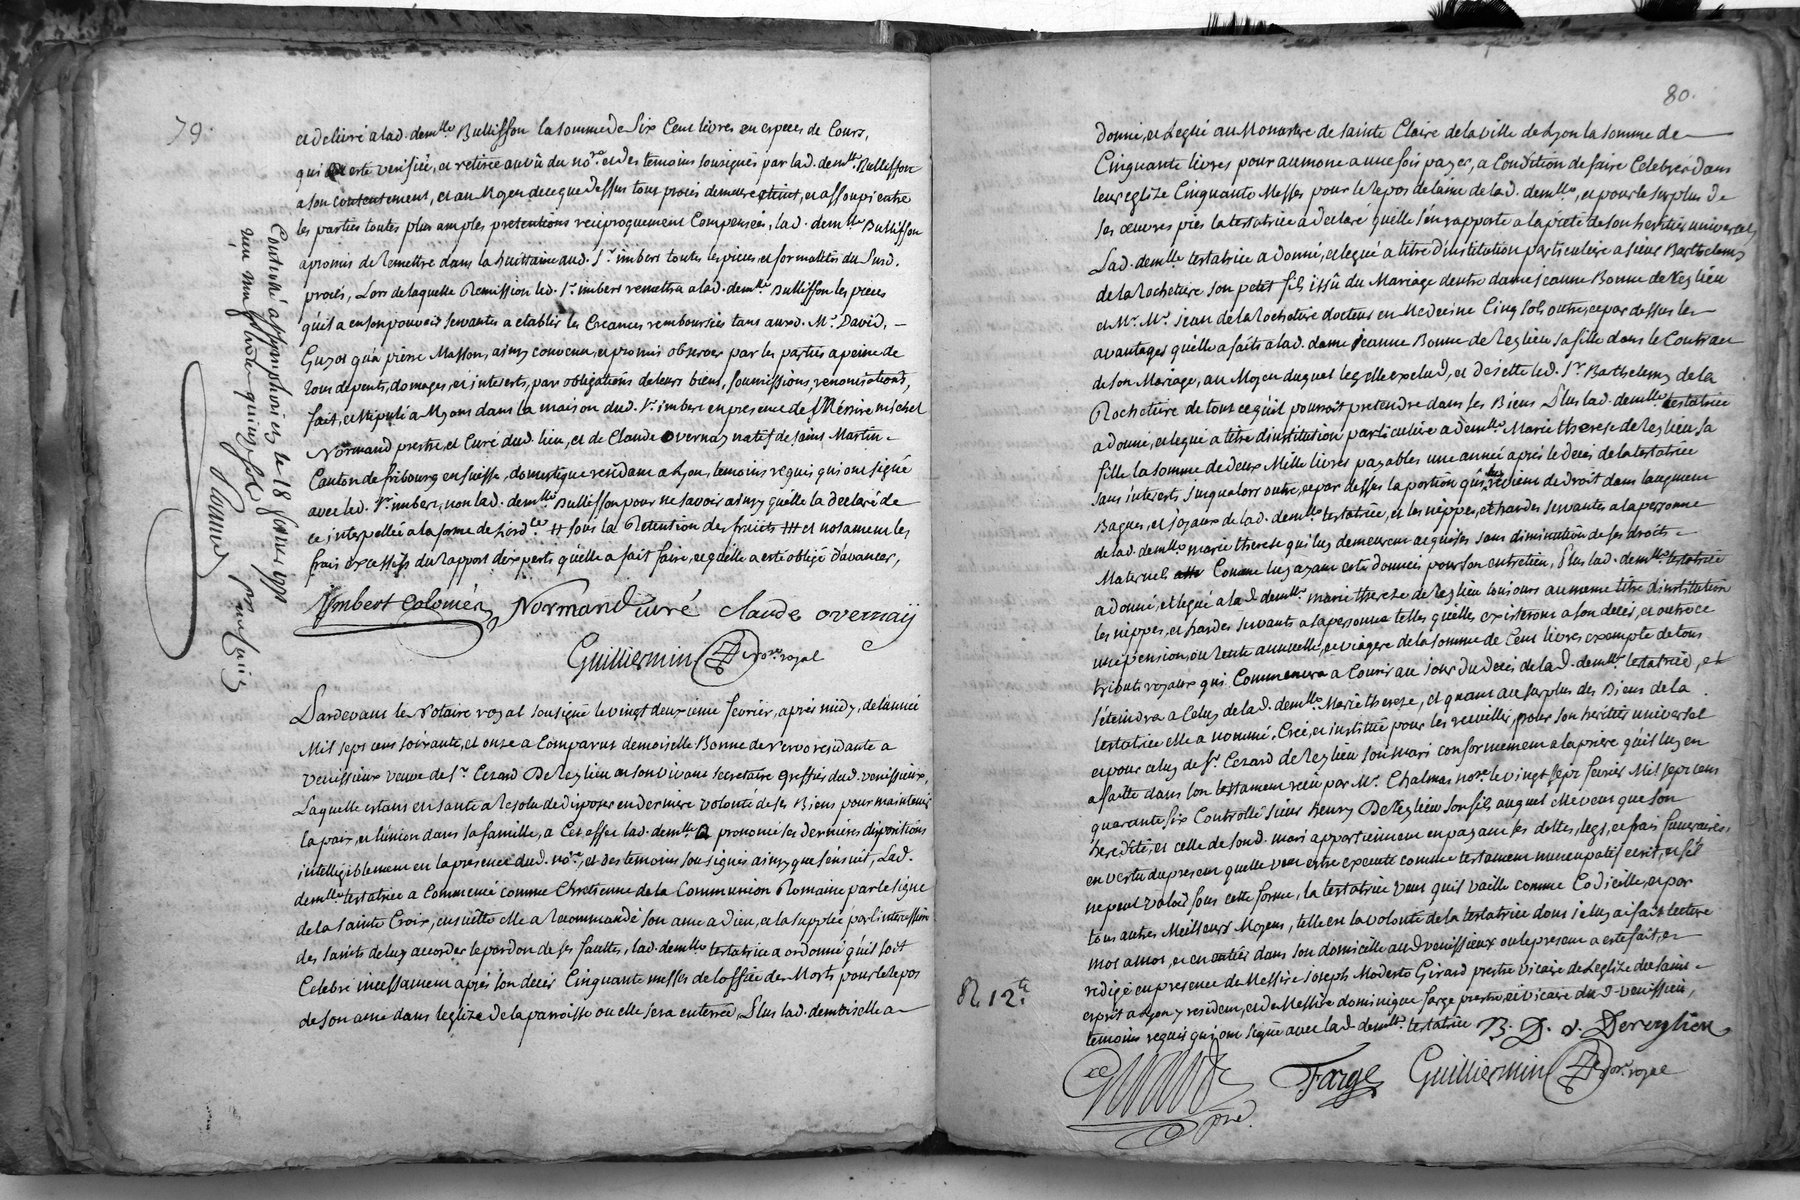 79.
et delivré a lad. demlle Bullisson la somme de Six Cent livres en especes de Cours,
qui a esté verifiée, et retirée au vû du nore et des temoins sousignés par lad. demlle Bullisson
a son contentement, et au Moyen de ce que dessus tout procés demeure eteint, et assoupi entre
les parties toutes plus amples pretentions reciproquement Compensées, lad. demlle Bullisson
a promis de Remettre dans la huittaine aud. Sr. imbert toutes les pieces et formalités du Susd.
procés, Lors de laquelle Remission led. Sr imbert remettra a lad. demlle Bullisson les pieces
qu'il a en son pouvoir servantes a etablir les Creances remboursées tant aux d. Mr. David,
Guyot qu'a pierre Masson, ainsy convenu, et promis observer par les parties a peine de
tous depents, domages, et interests, par obligations de leurs biens, soumissions, renonciations,
fait, et stipulé a Myons dans la maison dud. Sr. imbert en presence de Messire michel
Normand prestre, et Curé dud. lieu, et de Claude Overnay natif de saint Martin
Canton de fribourg en suisse, domestique residant a Lyon, temoins requis qui ont signé
avec led. Sr imbert, non lad. demlle Bullisson pour ne savoir ainsy qu'elle la declaré de
ce interpellée a la forme de Lordce # sous la Retention des fruits ## et notament les
frais excessifs du Rapport d'experts qu'elle a fait faire, et qu'elle a esté obligé d'avancer,
Imbert Colomés Normand curé Claude overnaÿ
Guilliermin Nore royal
Controllé a st symphorien le 18 fevrier 1771
reçu cinq livres quinze sols
Pardevant le Notaire royal sousigné le vingt deuxieme fevrier, aprés midy, de l'année
Mil sept cens soixante, et onze a Comparut demoiselle Bonne de Servo residante a
venissieux veuve de Sr. Cezard De Reylieu en son vivant secretaire greffier dud. venissieux,
Laquelle estant en santé a Resolu de disposer en derniere volonté de ses Biens pour maintenir
la paix, et l'union dans sa famille, a Cet effet lad. demlle a prononcé ses dernieres dispositions
intelligiblement en la presence dud. nore, et des temoins sousignés ainsy que s'ensuit, Lad.
demlle testatrice a Commencé comme Chretienne de la Communion Romaine par le signe
de la Sainte Croix, ensuitte elle a Recommandé son ame a Dieu, et la supplée par l'intercession
des saints de luy accorder le pardon de ses fauttes, lad. demlle testatrice a ordonné qu'il soit
Celebré incessament aprés son decés Cinquante messes de loffice des Morts pour le Repos
de son ame dans leglize de la parroisse ou elle sera enterrée, Plus lad. demoiselle a
80.
donné, et Legué au Monastere de Sainte Claire de la Ville de Lyon la Somme de
Cinquante livres pour aumone a une fois payer, a Condition de faire Celebrer dans
leur eglize Cinquante Messes pour le Repos de l'ame de lad. demlle, et pour le surplus de
ses œuvres pies la testatrice a declaré qu'elle s'en rapporte a la pieté de son heritier universel,
Lad. demlle testatrice a donné, et legué a titre d'institution particuliere a sieur Barthelemy
de la Rocheture son petit fils issû du Mariage d'entre dame jeanne Bonne de Reylieu
et Mr. Mr. jean de la Rocheture docteur en Medecine Cinq sols outre, et par dessus les
avantages qu'elle a faits a lad. dame jeanne Bonne de Reylieu sa fille dans le Contract
de son Mariage, au Moyen duquel legs elle exclud, et dejette led. Sr. Barthelemy de la
Rocheture de tout ce qu'il pourroit pretendre dans ses Biens Plus lad. demlle testatrice
a donné, et legué a titre d'institution particuliere a demlle. Marie therese de Reylieu sa
fille la somme de deux Mille livres payables une année aprés le decés de la testatrice
sans interests jusqu'alors outre, et par dessus la portion qui luy revient de droit dans l'augment
Bagues, et joyaux de lad. demlle testatrice, et les nippes, et hardes servantes a la personne
de lad. demlle marie therese qui luy demeurent acquises sans diminution de ses droits
Maternels Comme luy ayant esté données pour son entretien, Plus lad. demlle testatrice
a donné, et legué a la d. demlle. marie therese de Reylieu toujours au meme titre d'institution
les nippes, et hardes servants a sa personne telles qu'elles existeront a son decés, et outre ce
une pension, ou Rente annuelle, et viagere de la somme de Cent livres exempte de tous
tributs royaux qui Commencera a Courir au jour du decés de la d. demlle testatrice, et
s'éteindra a Celuy de la d. demlle Marie therese, et quant au surplus des Biens de la
testatrice elle a nommé, Créé, et institué pour les recueillir, pour son heritier universel
et pour celuy de Sr. Cezard de Reylieu son mari conformement a la priere qu'il luy en
a faitte dans son testament reçu par Mr. Chalmas nore. le vingt sept fevrier Mil sept cens
quarante six Controllé sieur henry De Reylieu son fils auquel elle veut que son
heredité, et celle de sond. mari appartiennent en payant ses dettes, legs, et frais funeraires,
en vertu du present quelle veut estre executé comme testament nuncupatif ecrit, et s'il
ne peut valoir sous cette forme, la testatrice veut qu'il vaille comme Codicille, et par
tous autres Meilleurs Moyens, telle est la volonté de la testatrice dont je luy ai fait lecture
mot a mot, et en entier dans son domicille aud venissieux ou le present a esté fait, et
redigé en presence de Messire joseph Modeste Girard prestre vicaire de Leglize du saint
esprit a Lyon y resident, et de Messire dominique farge prestre, et vicaire du d. venissieux,
temoins requis qui ont signé avec lad. demlle. testatrice B. D. S. Dereylieu
R 12 tt
Girard ptre. Farge Guilliermin Nore. royal